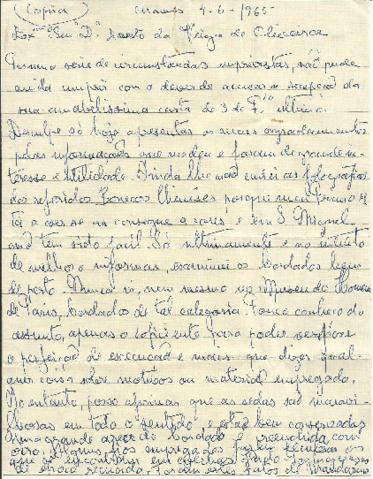 (Copia) 4-6-1965
Ex.mo Snr. D. da Veiga de Oliveira
Por uma serie de circunstancias imprevistas, não pude
ainda cumprir com o dever de accusar a recepção da
sua amabilissima carta de 3 de ultimo.
Desculpe só hoje apresentar os meus agradecimentos
pelas informações que me deu e foram de grande in-
teresse e utilidade. Ainda lhe não enviei as fotografias
dos referidos Bonecos porque
se não consegue e em S. Miguel
não tem sido facil. Só ultimamente e no intuito
de melhor o informar, examinei os bordados bem
de perto. Nunca vi, nem mesmo no Museu do
de Paris, bordados de tal categoria. Pouco conheço do
assunto, apenas o suficiente para poder
a perfeição de execução e mais que dizer qual-
quer coisa sobre motivos ou material empregado.
No entanto, posso afirmar que as sedas são maravi-
lhosas em todo o sentido, e estão bem conservadas
Uma grande do bordado é com
ouro. Alguns fios empregados
que se encontram em
de época recuada. Foram fatos de mandarins